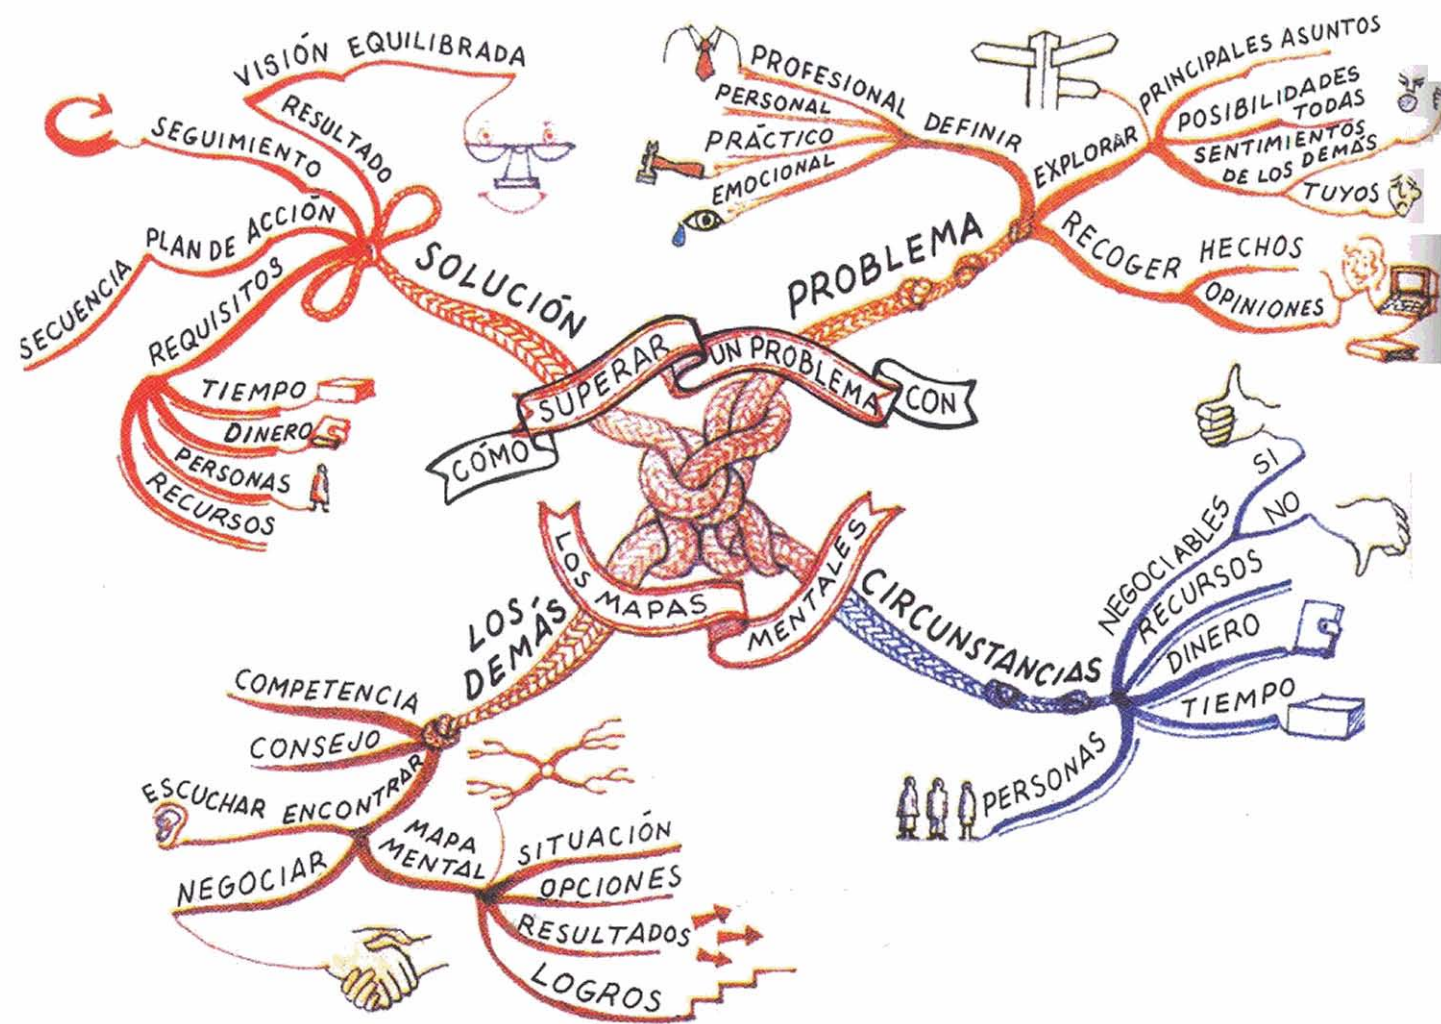 CÓMO SUPERAR UN PROBLEMA CON
LOS MAPAS MENTALES
PROBLEMA
DEFINIR
PROFESIONAL
PERSONAL
PRÁCTICO
EMOCIONAL
EXPLORAR
PRINCIPALES ASUNTOS
POSIBILIDADES
TODAS
SENTIMIENTOS
DE LOS DEMÁS
TUYOS
RECOGER
HECHOS
OPINIONES
CIRCUNSTANCIAS
NEGOCIABLES
SI
NO
RECURSOS
DINERO
TIEMPO
PERSONAS
LOS
DEMÁS
COMPETENCIA
CONSEJO
ENCONTRAR
ESCUCHAR
NEGOCIAR
MAPA
MENTAL
SITUACIÓN
OPCIONES
RESULTADOS
LOGROS
SOLUCIÓN
RESULTADO
VISIÓN EQUILIBRADA
SEGUIMIENTO
PLAN DE ACCIÓN
SECUENCIA
REQUISITOS
TIEMPO
DINERO
PERSONAS
RECURSOS